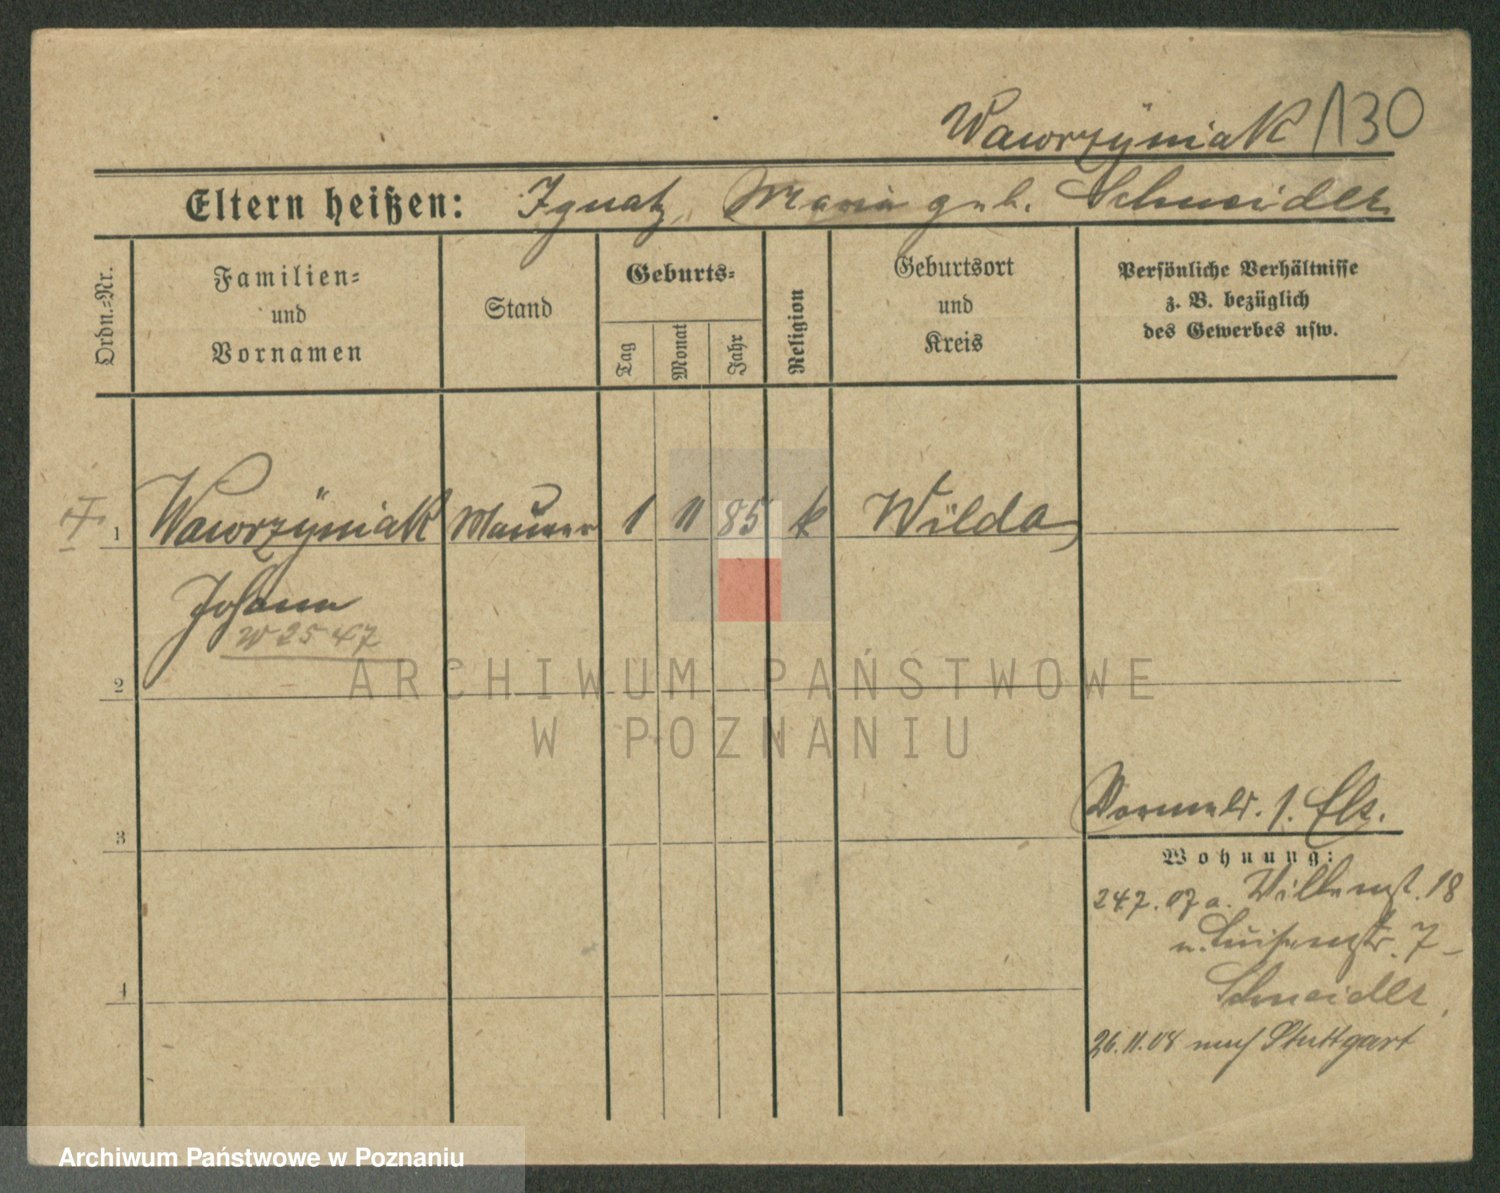 Wawrzÿniak /130
Eltern heißen: Ignatz, Maria geb. Schneider
Ordn.-Nr.
Familien-
und
Vornamen
Stand
Geburts-
Tag
Monat
Jahr
Religion
Geburtsort
und
Kreis
Persönliche Verhältnisse
z. B. bezüglich
des Gewerbes usw.
1 Wawrzÿniak Maurer 1 11 85 k Wilda
Johann
W 2547
2
3
4
1. Els.
Wohnung:
24.7.07 a. 18
n. Luisenstr. 7 -
Schneider,
26.11.08 nach Stuttgart
ARCHIWUM PAŃSTWOWE
W POZNANIU
Archiwum Państwowe w Poznaniu